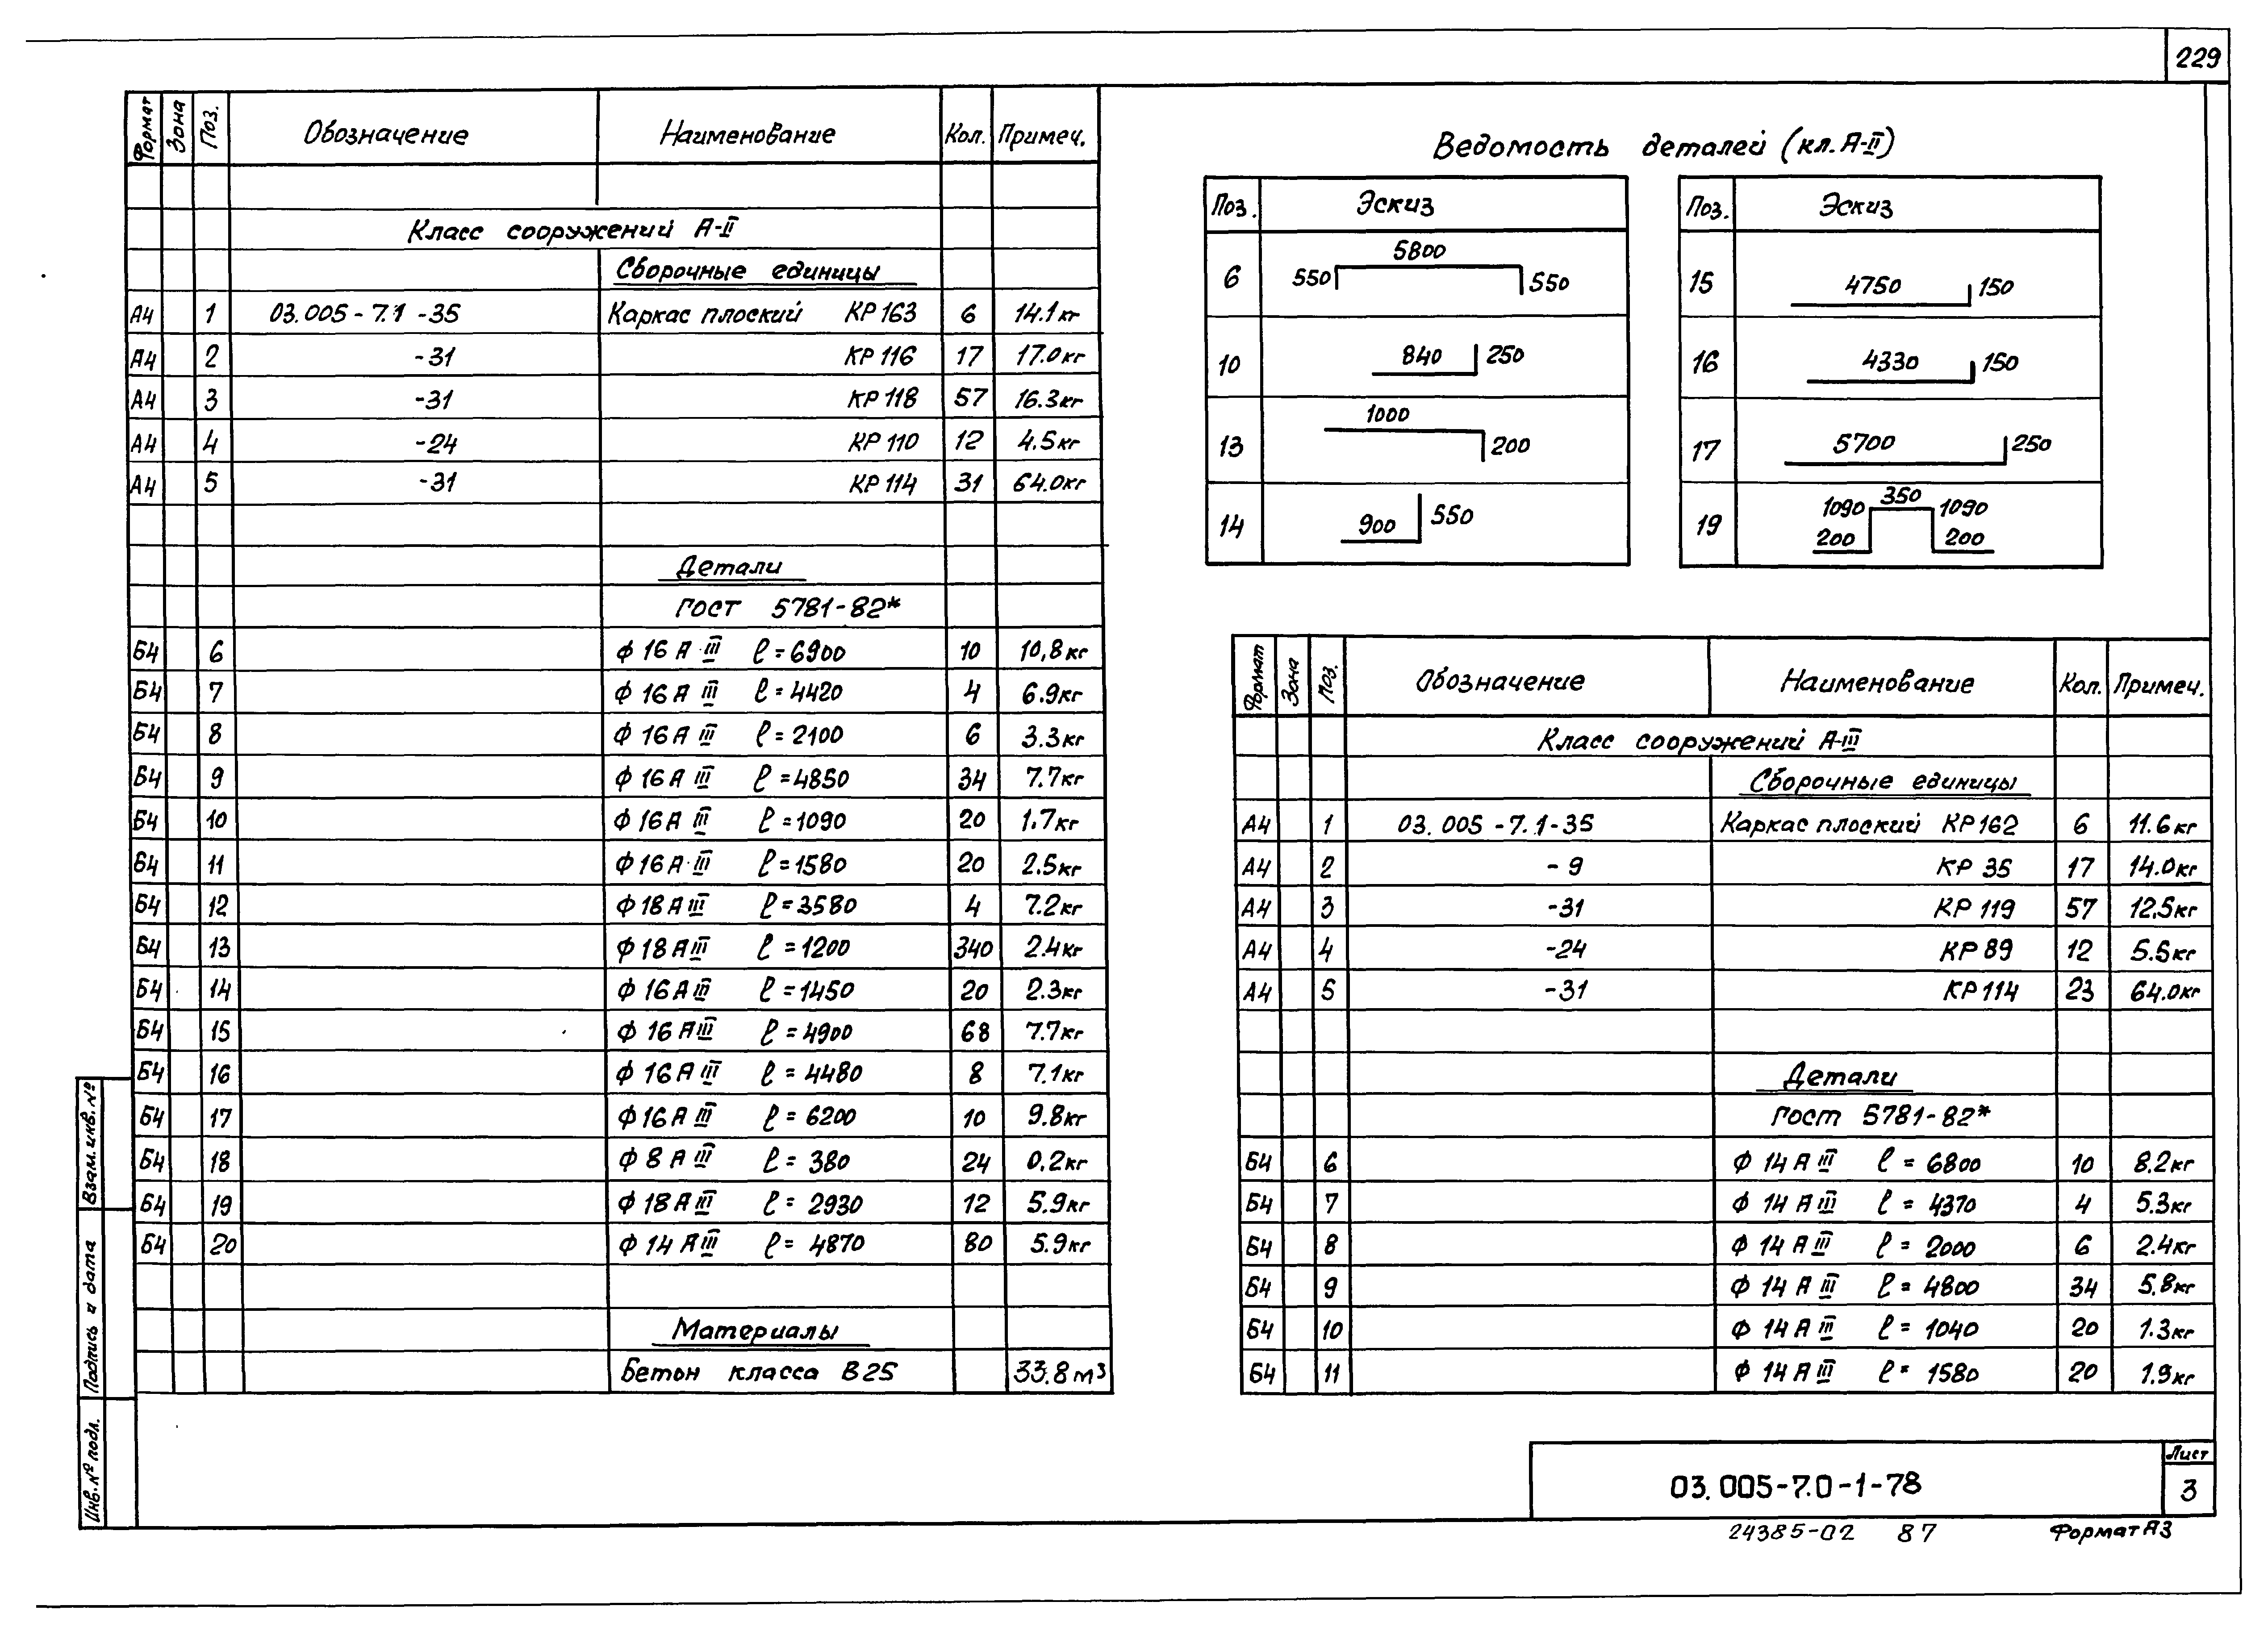 229
Формат Зона Поз. Обозначение Наименование Кол. Примеч.
Класс сооружений А-II
Сборочные единицы
А4 1 03.005-7.1-35 Каркас плоский КР163 6 14.1кг
А4 2 -31 КР116 17 17.0кг
А4 3 -31 КР118 57 16.3кг
А4 4 -24 КР110 12 4.5кг
А4 5 -31 КР114 31 64.0кг
Детали
ГОСТ 5781-82*
Б4 6 Ф16АIII ℓ=6900 10 10,8кг
Б4 7 Ф16АIII ℓ=4420 4 6.9кг
Б4 8 Ф16АIII ℓ=2100 6 3.3кг
Б4 9 Ф16АIII ℓ=4850 34 7.7кг
Б4 10 Ф16АIII ℓ=1090 20 1.7кг
Б4 11 Ф16АIII ℓ=1580 20 2.5кг
Б4 12 Ф18АIII ℓ=3580 4 7.2кг
Б4 13 Ф18АIII ℓ=1200 340 2.4кг
Б4 14 Ф16АIII ℓ=1450 20 2.3кг
Б4 15 Ф16АIII ℓ=4900 68 7.7кг
Б4 16 Ф16АIII ℓ=4480 8 7.1кг
Б4 17 Ф16АIII ℓ=6200 10 9.8кг
Б4 18 Ф8АIII ℓ=380 24 0.2кг
Б4 19 Ф18АIII ℓ=2930 12 5.9кг
Б4 20 Ф14АIII ℓ=4870 80 5.9кг
Материалы
Бетон класса В25 33.8м³
Ведомость деталей (кл. А-II)
Поз. Эскиз
6 550 5800 550
10 840 250
13 1000 200
14 900 550
Поз. Эскиз
15 4750 150
16 4330 150
17 5700 250
19 1090 350 1090
200 200
Формат Зона Поз. Обозначение Наименование Кол. Примеч.
Класс сооружений А-III
Сборочные единицы
А4 1 03.005-7.1-35 Каркас плоский КР162 6 11.6кг
А4 2 -9 КР35 17 14.0кг
А4 3 -31 КР119 57 12.5кг
А4 4 -24 КР89 12 5.5кг
А4 5 -31 КР114 23 64.0кг
Детали
ГОСТ 5781-82*
Б4 6 Ф14АIII ℓ=6800 10 8.2кг
Б4 7 Ф14АIII ℓ=4370 4 5.3кг
Б4 8 Ф14АIII ℓ=2000 6 2.4кг
Б4 9 Ф14АIII ℓ=4800 34 5.8кг
Б4 10 Ф14АIII ℓ=1040 20 1.3кг
Б4 11 Ф14АIII ℓ=1580 20 1.9кг
Взам.инв.№
Подпись и дата
Инв.№ подл.
03.005-7.0-1-78
Лист
3
24385-02 87 Формат А3